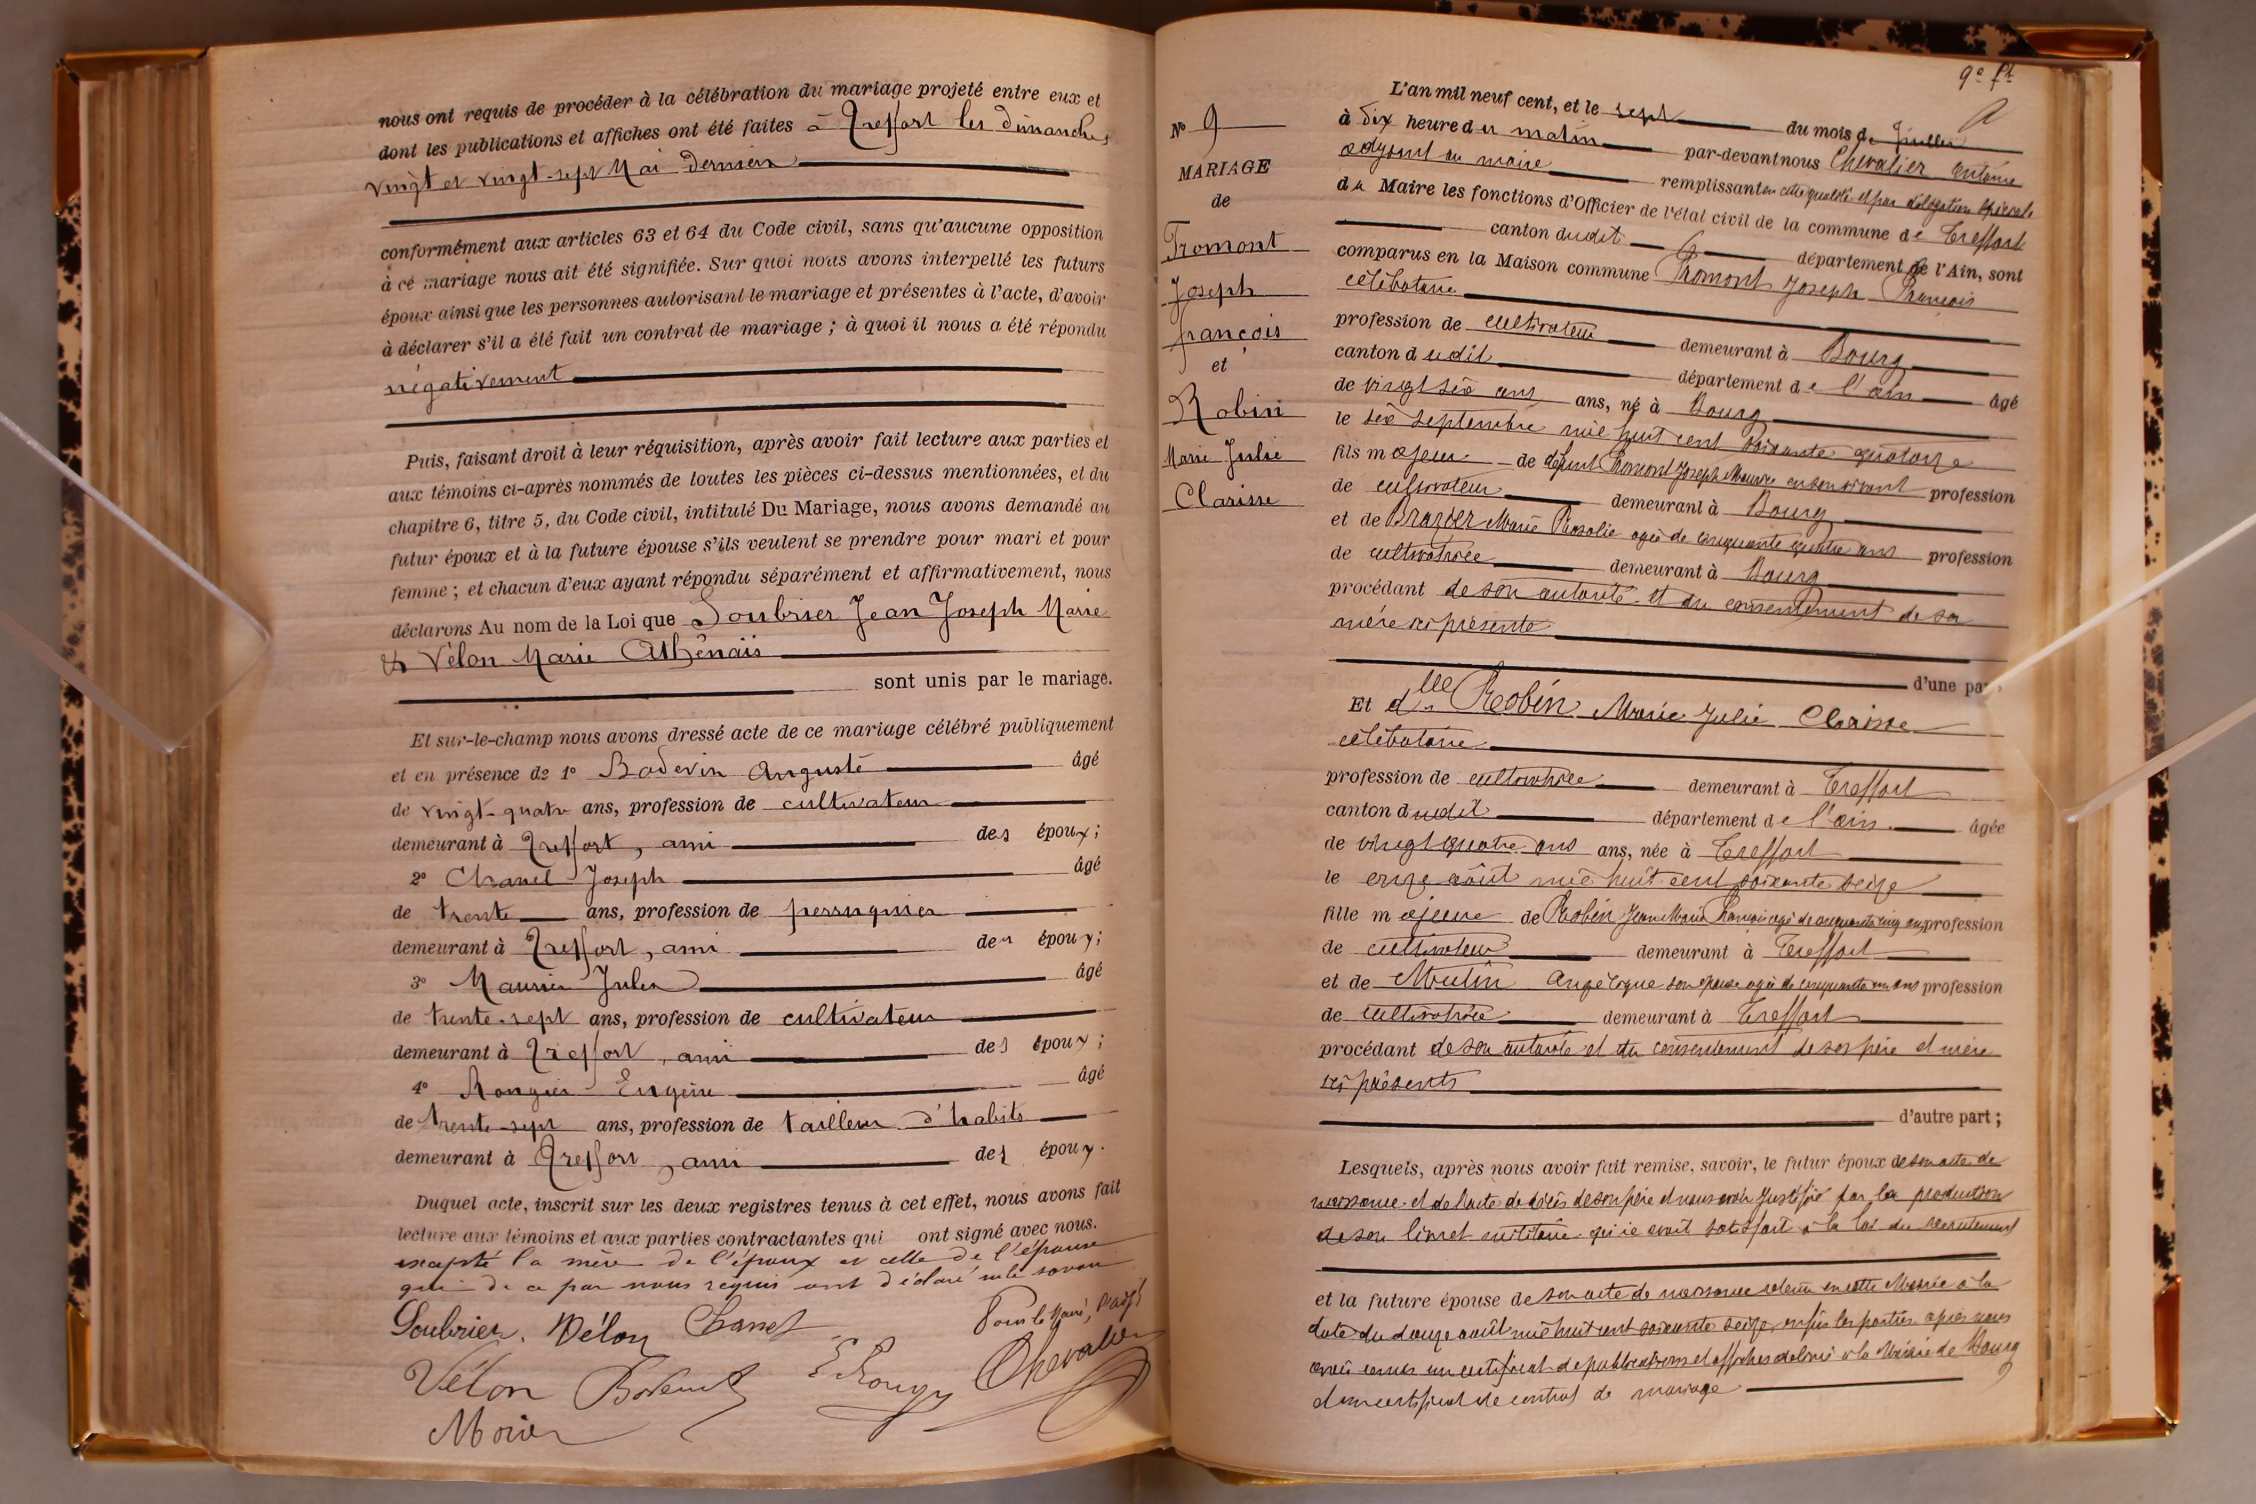 nous ont requis de procéder à la célébration du mariage projeté entre eux et
dont les publications et affiches ont été faites à Treffort les dimanches
vingt et vingt-sept Mai dernier
conformément aux articles 63 et 64 du Code civil, sans qu'aucune opposition
à ce mariage nous ait été signifiée. Sur quoi nous avons interpellé les futurs
époux ainsi que les personnes autorisant le mariage et présentes à l'acte, d'avoir
à déclarer s'il a été fait un contrat de mariage ; à quoi il nous a été répondu
négativement
Puis, faisant droit à leur réquisition, après avoir fait lecture aux parties et
aux témoins ci-après nommés de toutes les pièces ci-dessus mentionnées, et du
chapitre 6, titre 5, du Code civil, intitulé Du Mariage, nous avons demandé au
futur époux et à la future épouse s'ils veulent se prendre pour mari et pour
femme ; et chacun d'eux ayant répondu séparément et affirmativement, nous
déclarons Au nom de la Loi que Soubrier Jean Joseph Marie
& Vélon Marie Athénaïs
sont unis par le mariage.
Et sur-le-champ nous avons dressé acte de ce mariage célébré publiquement
et en présence de 1º Bodevin Auguste âgé
de vingt-quatre ans, profession de cultivateur
demeurant à Treffort, ami des époux ;
2º Chanel Joseph âgé
de trente ans, profession de perruquier
demeurant à Treffort, ami des époux ;
3º Maurier Jules âgé
de trente-sept ans, profession de cultivateur
demeurant à Treffort, ami des époux ;
4º Rougier Eugène âgé
de trente-sept ans, profession de tailleur d'habits
demeurant à Treffort, ami des époux.
Duquel acte, inscrit sur les deux registres tenus à cet effet, nous avons fait
lecture aux témoins et aux parties contractantes qui ont signé avec nous.
excepté la mère de l'époux et celle de l'épouse
qui de ce par nous requis ont déclaré ne le savoir
Soubrier. Vélon Chanel Pour le Maire, l'adj
Vélon Bodevin E Rougier Chevalier
Morier
9e ft
Nº 9
MARIAGE
de
Fromont
Joseph
françois
et
Robin
Marie Julie
Clarisse
L'an mil neuf cent, et le sept du mois de Juillet
à dix heure du matin par-devant nous Chevalier Antoine
adjoint au maire remplissant en cette qualité et par délégation spéciale
du Maire les fonctions d'Officier de l'état civil de la commune de Treffort
canton dudit département de l'Ain, sont
comparus en la Maison commune Fromont Joseph François
célibataire
profession de cultivateur demeurant à Bourg
canton dudit département de l'ain âgé
de vingt six ans ans, né à Bourg
le six septembre mil huit cent soixante quatorze
fils majeur de défunt Fromont Joseph Maurice en son vivant profession
de cultivateur demeurant à Bourg
et de Brazier Marie Rosalie agée de cinquante quatre ans profession
de cultivatrice demeurant à Bourg
procédant de son autorité et du consentement de sa
mère ici présente
d'une part,
Et dlle Robin Marie Julie Clarisse
célibataire
profession de cultivatrice demeurant à Treffort
canton dudit département de l'ain âgée
de vingt quatre ans ans, née à Treffort
le onze août mil huit cent soixante seize
fille majeure de Robin Jean Marie François agé de cinquante cinq ans profession
de cultivateur demeurant à Treffort
et de Mutin Angélique son épouse agée de cinquante un ans profession
de cultivatrice demeurant à Treffort
procédant de son autorité et du consentement de ses père et mère
ici présents
d'autre part ;
Lesquels, après nous avoir fait remise, savoir, le futur époux de son acte de
naissance et de l'acte de décès de son père et nous avoir justifié par la production
de son livret militaire qu'il avait satisfait à la loi du recrutement
et la future épouse de son acte de naissance retenu en cette Mairie à la
date du douze août mil huit cent soixante seize, enfin les parties après nous
avoir remis un certificat de publications et affiches délivré à la Mairie de Bourg
d'un certificat de contrat de mariage